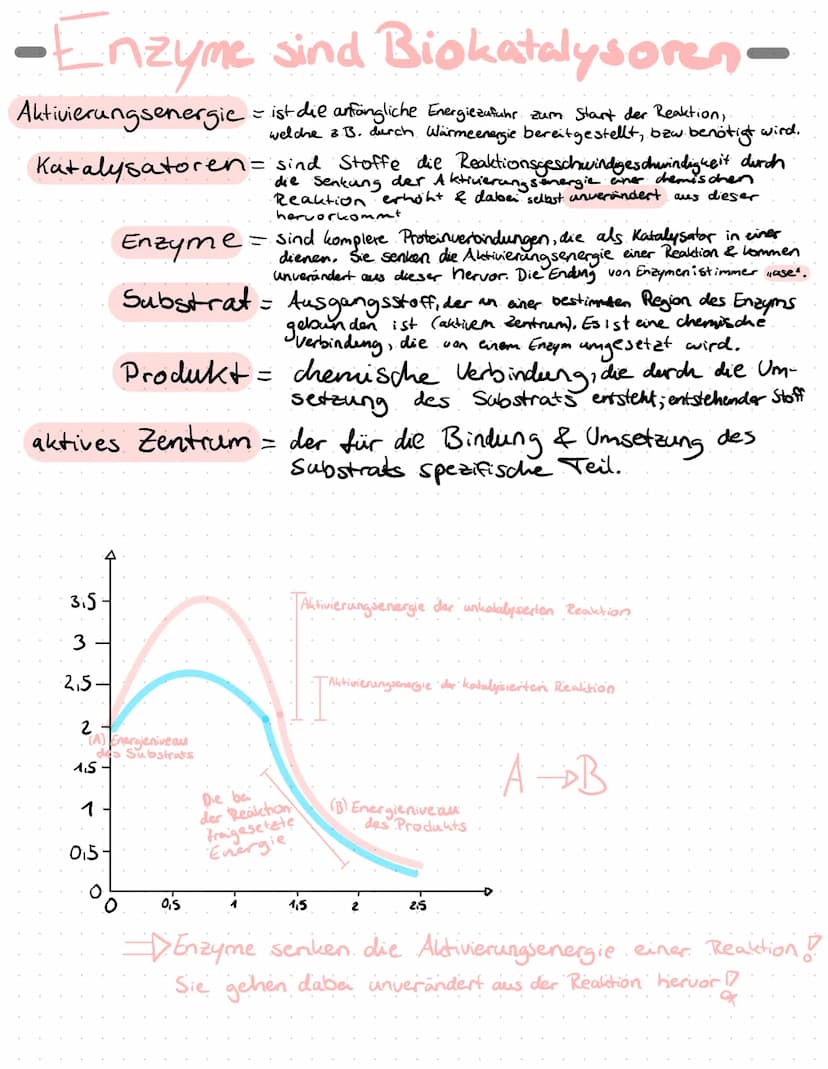 Enzyme sind Biokatalysoren
Aktivierungsenergie = ist die anfängliche Energiezufuhr zum Start der Reaktion,
welche z.B. durch Wärmeenergie bereitgestellt, bzw benötigt wird.
Katalysatoren = sind Stoffe die Reaktionsgeschwindgeschwindigkeit durch
die Senkung der Aktivierungsenergie einer chemischen
Reaktion erhöht & dabei selbst unverändert aus dieser
hervorkommt
Enzyme = sind komplexe Proteinverbindungen, die als Katalysator in einer
dienen. Sie senken die Aktivierungsenergie einer Reaktion & kommen
unverändert aus dieser hervor. Die Endung von Enzymen ist immer „ase".
Substrat = Ausgangsstoff, der an einer bestimmten Region des Enzyms
gebunden ist (aktivem Zentrum). Es ist eine chemische
Verbindung, die von einem Enzym umgesetzt wird.
Produkt = chemische Verbindung, die durch die Um-
setzung des Substrats entsteht; entstehender Stoff
aktives Zentrum = der für die Bindung & Umsetzung des
Substrats spezifische Teil.
3,5
Aktivierungsenergie der unkatalysierten Reaktion
3
2,5
Aktivierungsenergie der katalysierten Reaktion
2
(A) Energieniveau
des Substrats
1,5
A → B
Die bei
der Reaktion
freigesetzte
Energie
1
(B) Energieniveau
des Produkts
0,5
0
0 0,5 1 1,5 2 2,5
⇒ Enzyme senken die Aktivierungsenergie einer Reaktion!
Sie gehen dabei unverändert aus der Reaktion hervor!